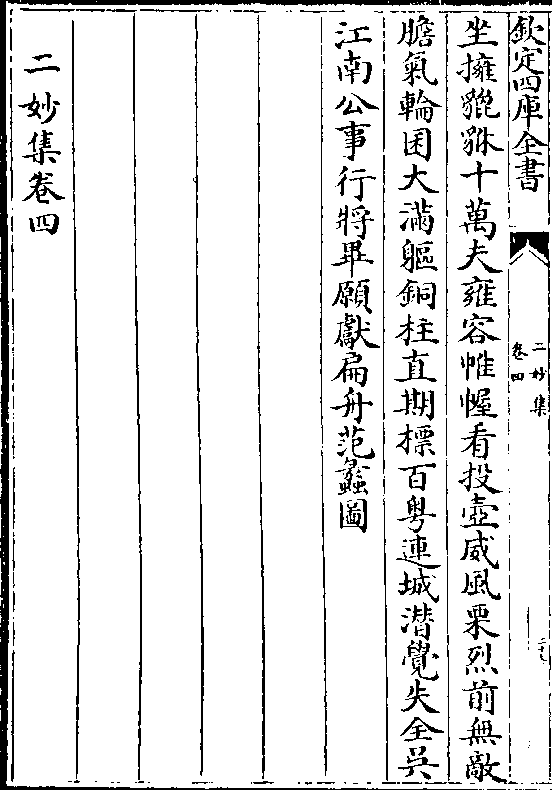 欽定四庫全書
二妙集
卷四
坐擁貔貅十萬夫雍容帷幄看投壺威風栗烈前無敵
膽氣輪囷大滿軀銅柱直期標百粤連城潛覺失全吳
江南公事行將畢願獻扁舟范蠡圖
二妙集卷四